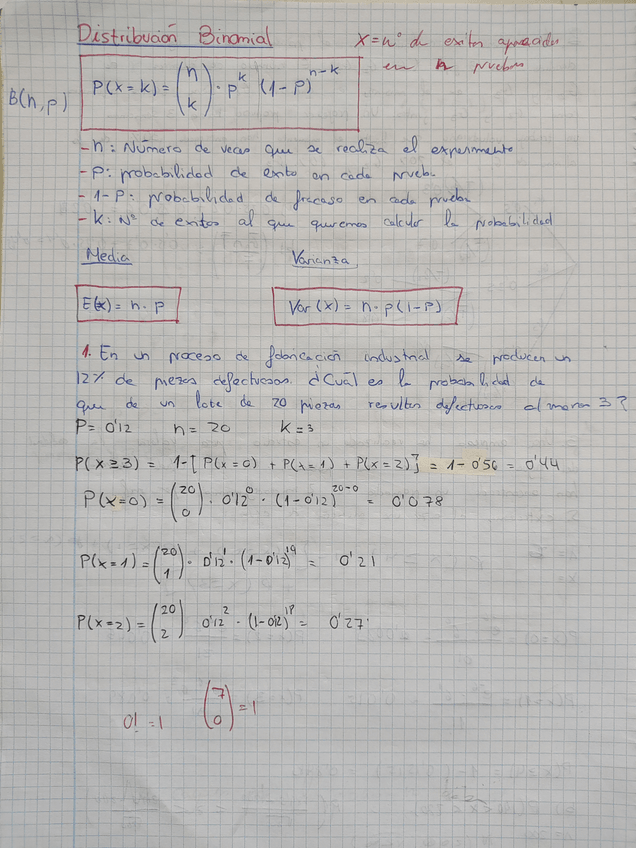 Distribución Binomial
X = nº de exitos aparecidos
en n pruebas
B(n,p)
P(x=k) = (n k) · p^k (1-p)^n-k
- n: Número de veces que se realiza el experimento
- p: probabilidad de exito en cada prueba
- 1-p: probabilidad de fracaso en cada prueba
- k: Nº de exitos al que queremos calcular la probabilidad
Media Varianza
E(x) = n · p Var (x) = n · p (1-p)
1. En un proceso de fabricación industrial se producen un
12% de piezas defectuosas. ¿Cuál es la probabilidad de
que de un lote de 20 piezas resulten defectuosas al menos 3?
P = 0'12 n = 20 K = 3
P(x≥3) = 1-[P(x=0) + P(x=1) + P(x=2)] = 1-0'56 = 0'44
P(x=0) = (20 0) · 0'12^0 · (1-0'12)^20-0 = 0'078
P(x=1) = (20 1) · 0'12^1 · (1-0'12)^19 = 0'21
P(x=2) = (20 2) 0'12^2 · (1-0'12)^18 = 0'27
0! = 1 (7 0) = 1